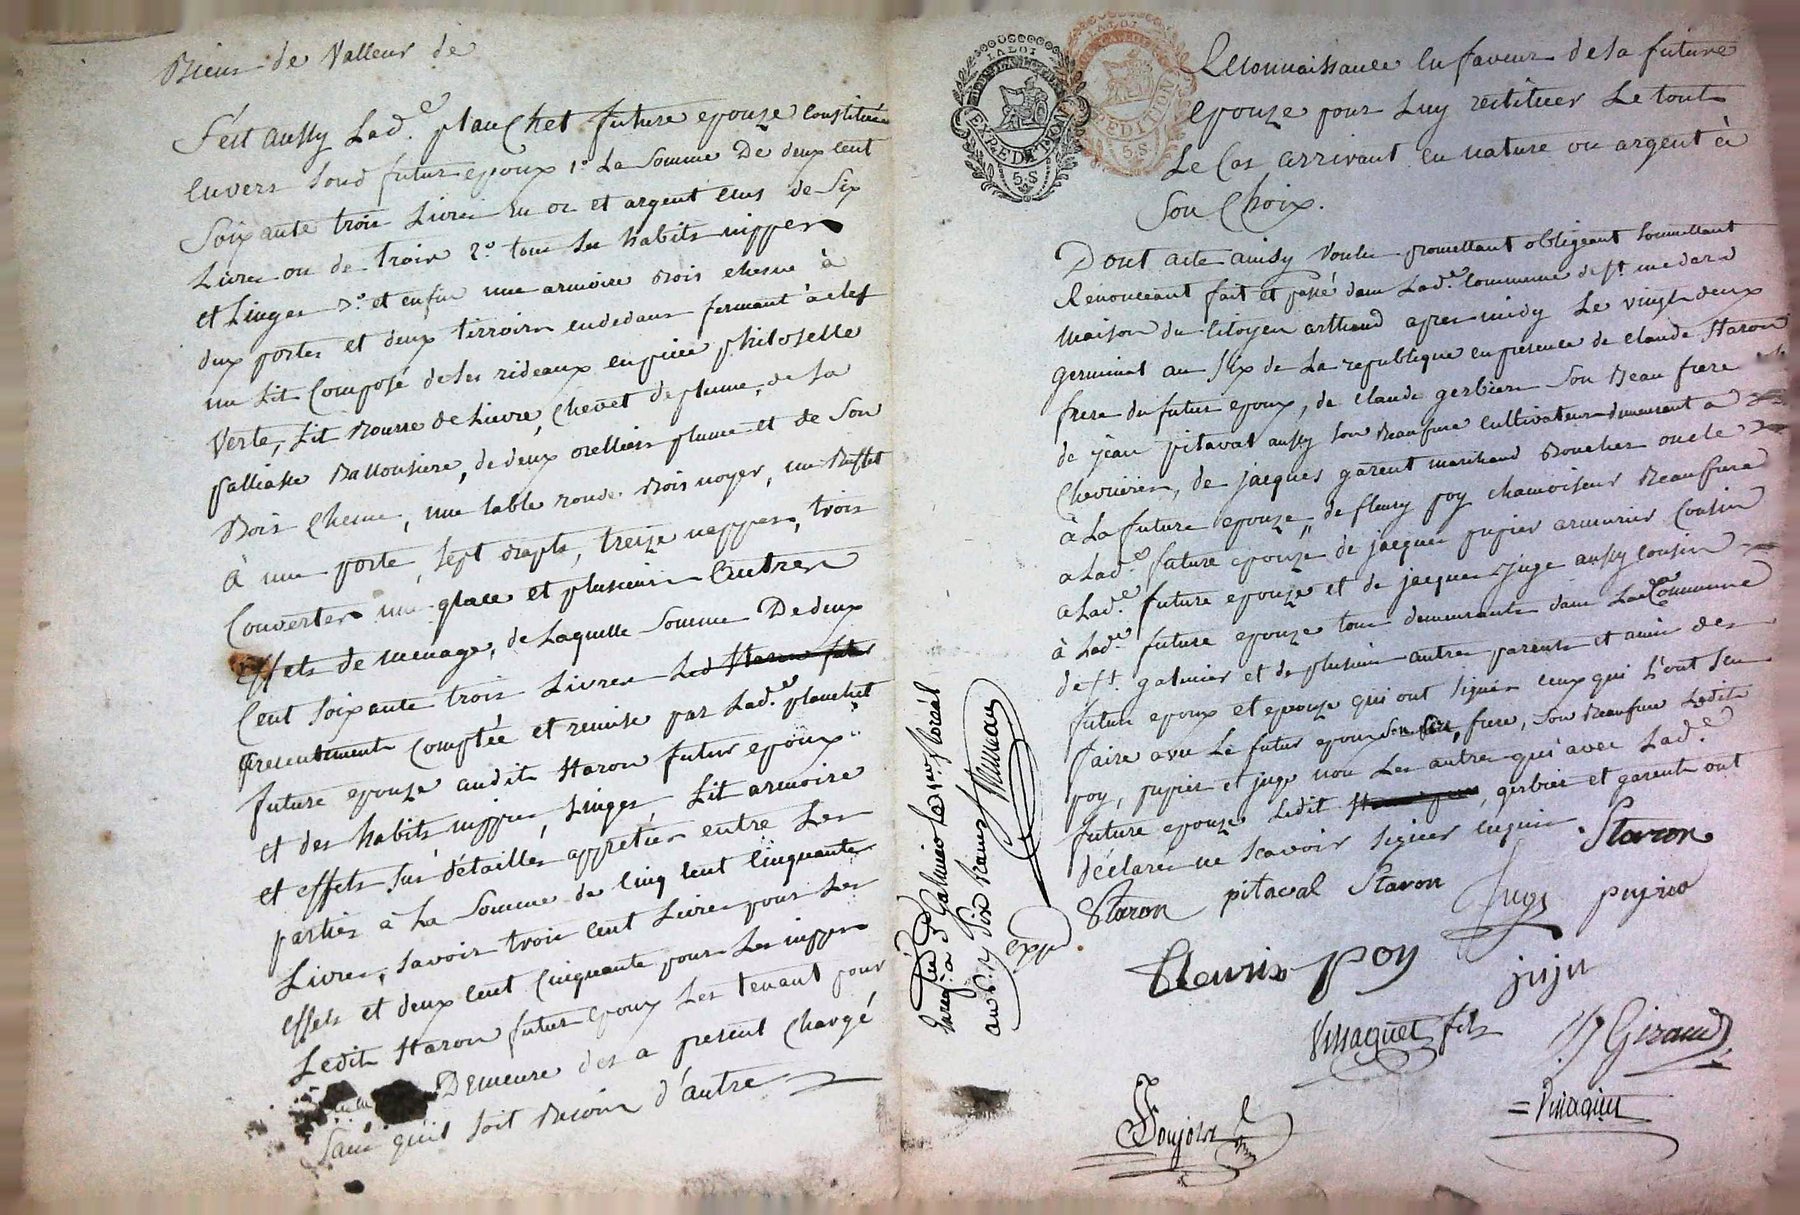 Biens de Valleur de
S'est aussy Lad.e planchet future epouze constituée
envers Sond futur epoux 1.o La Somme De deux cent
Soixante trois Livres En or et argent ecus de Six
Livres ou de trois 2.o tous Ses habits nippes
et Linges 3.o et enfin une armoire Bois chesne à
deux portes et deux tirroirs endedans fermant à clef
un Lit Composé de Ses rideaux en piece philoselle
Verte, Lit Bourre de Lievre, Chevet de plume, de Sa
palliasse Ballousiere, de deux orelliers plume et de Son
Bois Chesne, une table ronde Bois noyer, un Buffet
à une porte, Sept drapts, treize nappes, trois
Couvertes une glace et plusieurs Autres
effets de menage, de Laquelle Somme De deux
Cent Soixante trois Livres Led Staron futur
presentement comptée et remise par Lad.e planchet
future epouze audit Staron futur epoux
et des habits nippes, Linges, Lit armoire
et effets Sus détailles apprétiés entre Les
parties à La Somme de Cinq Cent Cinquante
Livres, Savoir trois Cent Livres pour Les
effets et deux Cent Cinquante pour Les nippes
Ledit Staron futur epoux Les tenant pour
Demeure des a present Chargé
Sans quil Soit Besoin d'autre
LA LOI
EXPEDITION
5.S
LA LOI
EXPEDITION
5.S
Reconnaissance En faveur de Sa future
epouze pour Luy restituer Le tout
Le Cas arrivant en nature ou argent à
Son Choix.
Dont acte ainsy Voulu promettant obligeant Soumettant
Renonceant fait et passé dans Lad.e Commune de St. medard
maison du Citoyen arthaud apres midy Le vingt deux
germinal an Six de La republique en presence de claude Staron
frere du futur epoux, de claude gerbier Son Beau frere
de jean pitaval aussy Son Beaufrere cultivateurs demeurant a
Chevrieres, de jacques garent marchand Boucher oncle
à La future epouze, de fleury poy chamoiseur Beaufrere
a Lad.e future epouze de jacques pupier armurier Cousin
a Lad.e future epouze et de jacques juge aussy Cousin
à Lad.e future epouze tous demeurants dans La Commune
de St. galmier et de plusieurs autres parents et amis des
futurs epoux et epouze qui ont Signés ceux qui L'ont Seu
faire avec Le futur epoux frere, Son Beaufrere Ledit
poy, pupier et juge non Les autres qui avec Lad.e
future epouze Ledit gerbier et garent ont
déclarés ne Scavoir Signer enquis
Staron
Staron pitaval Staron Juge pupier
fleurix poy jujn
Vinaguet fils Giraud
Vinaguet
Soujolot
Enregistré à S Galmier le 1er floréal
an 6. 
expd.